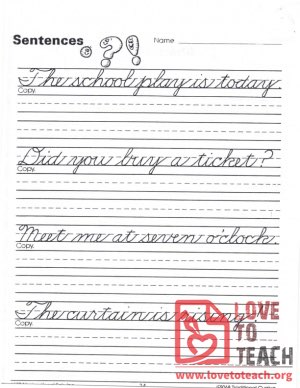 Sentences . ? !
Name
The school play is today.
Copy.
Did you buy a ticket?
Copy.
Meet me at seven o'clock.
Copy.
The curtain is rising!
Copy.
LOVE
TO
TEACH
www.lovetoteach.org
24